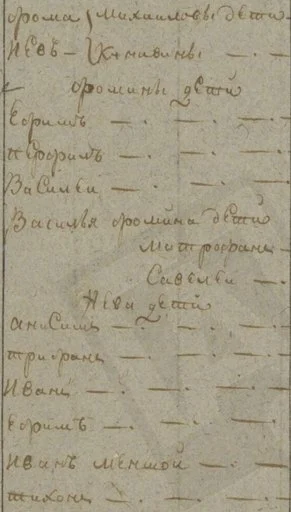 фрома } Михаиловы дети
Иевъ – } Кунавины – . –
фромины дети
Ефримъ – . – . – . –
Ефримъ – . – . – . –
Василеи – . – . – . –
Василья фромина дети
Митрофанъ –
Савелеи – .
Иева дети
Анисимъ – . – . – . –
трифанъ – . – . – . –
Иванъ – . – . – . –
Ефримъ – . – . – . –
Иванъ меншои – . –
тихонъ – . – . – . –